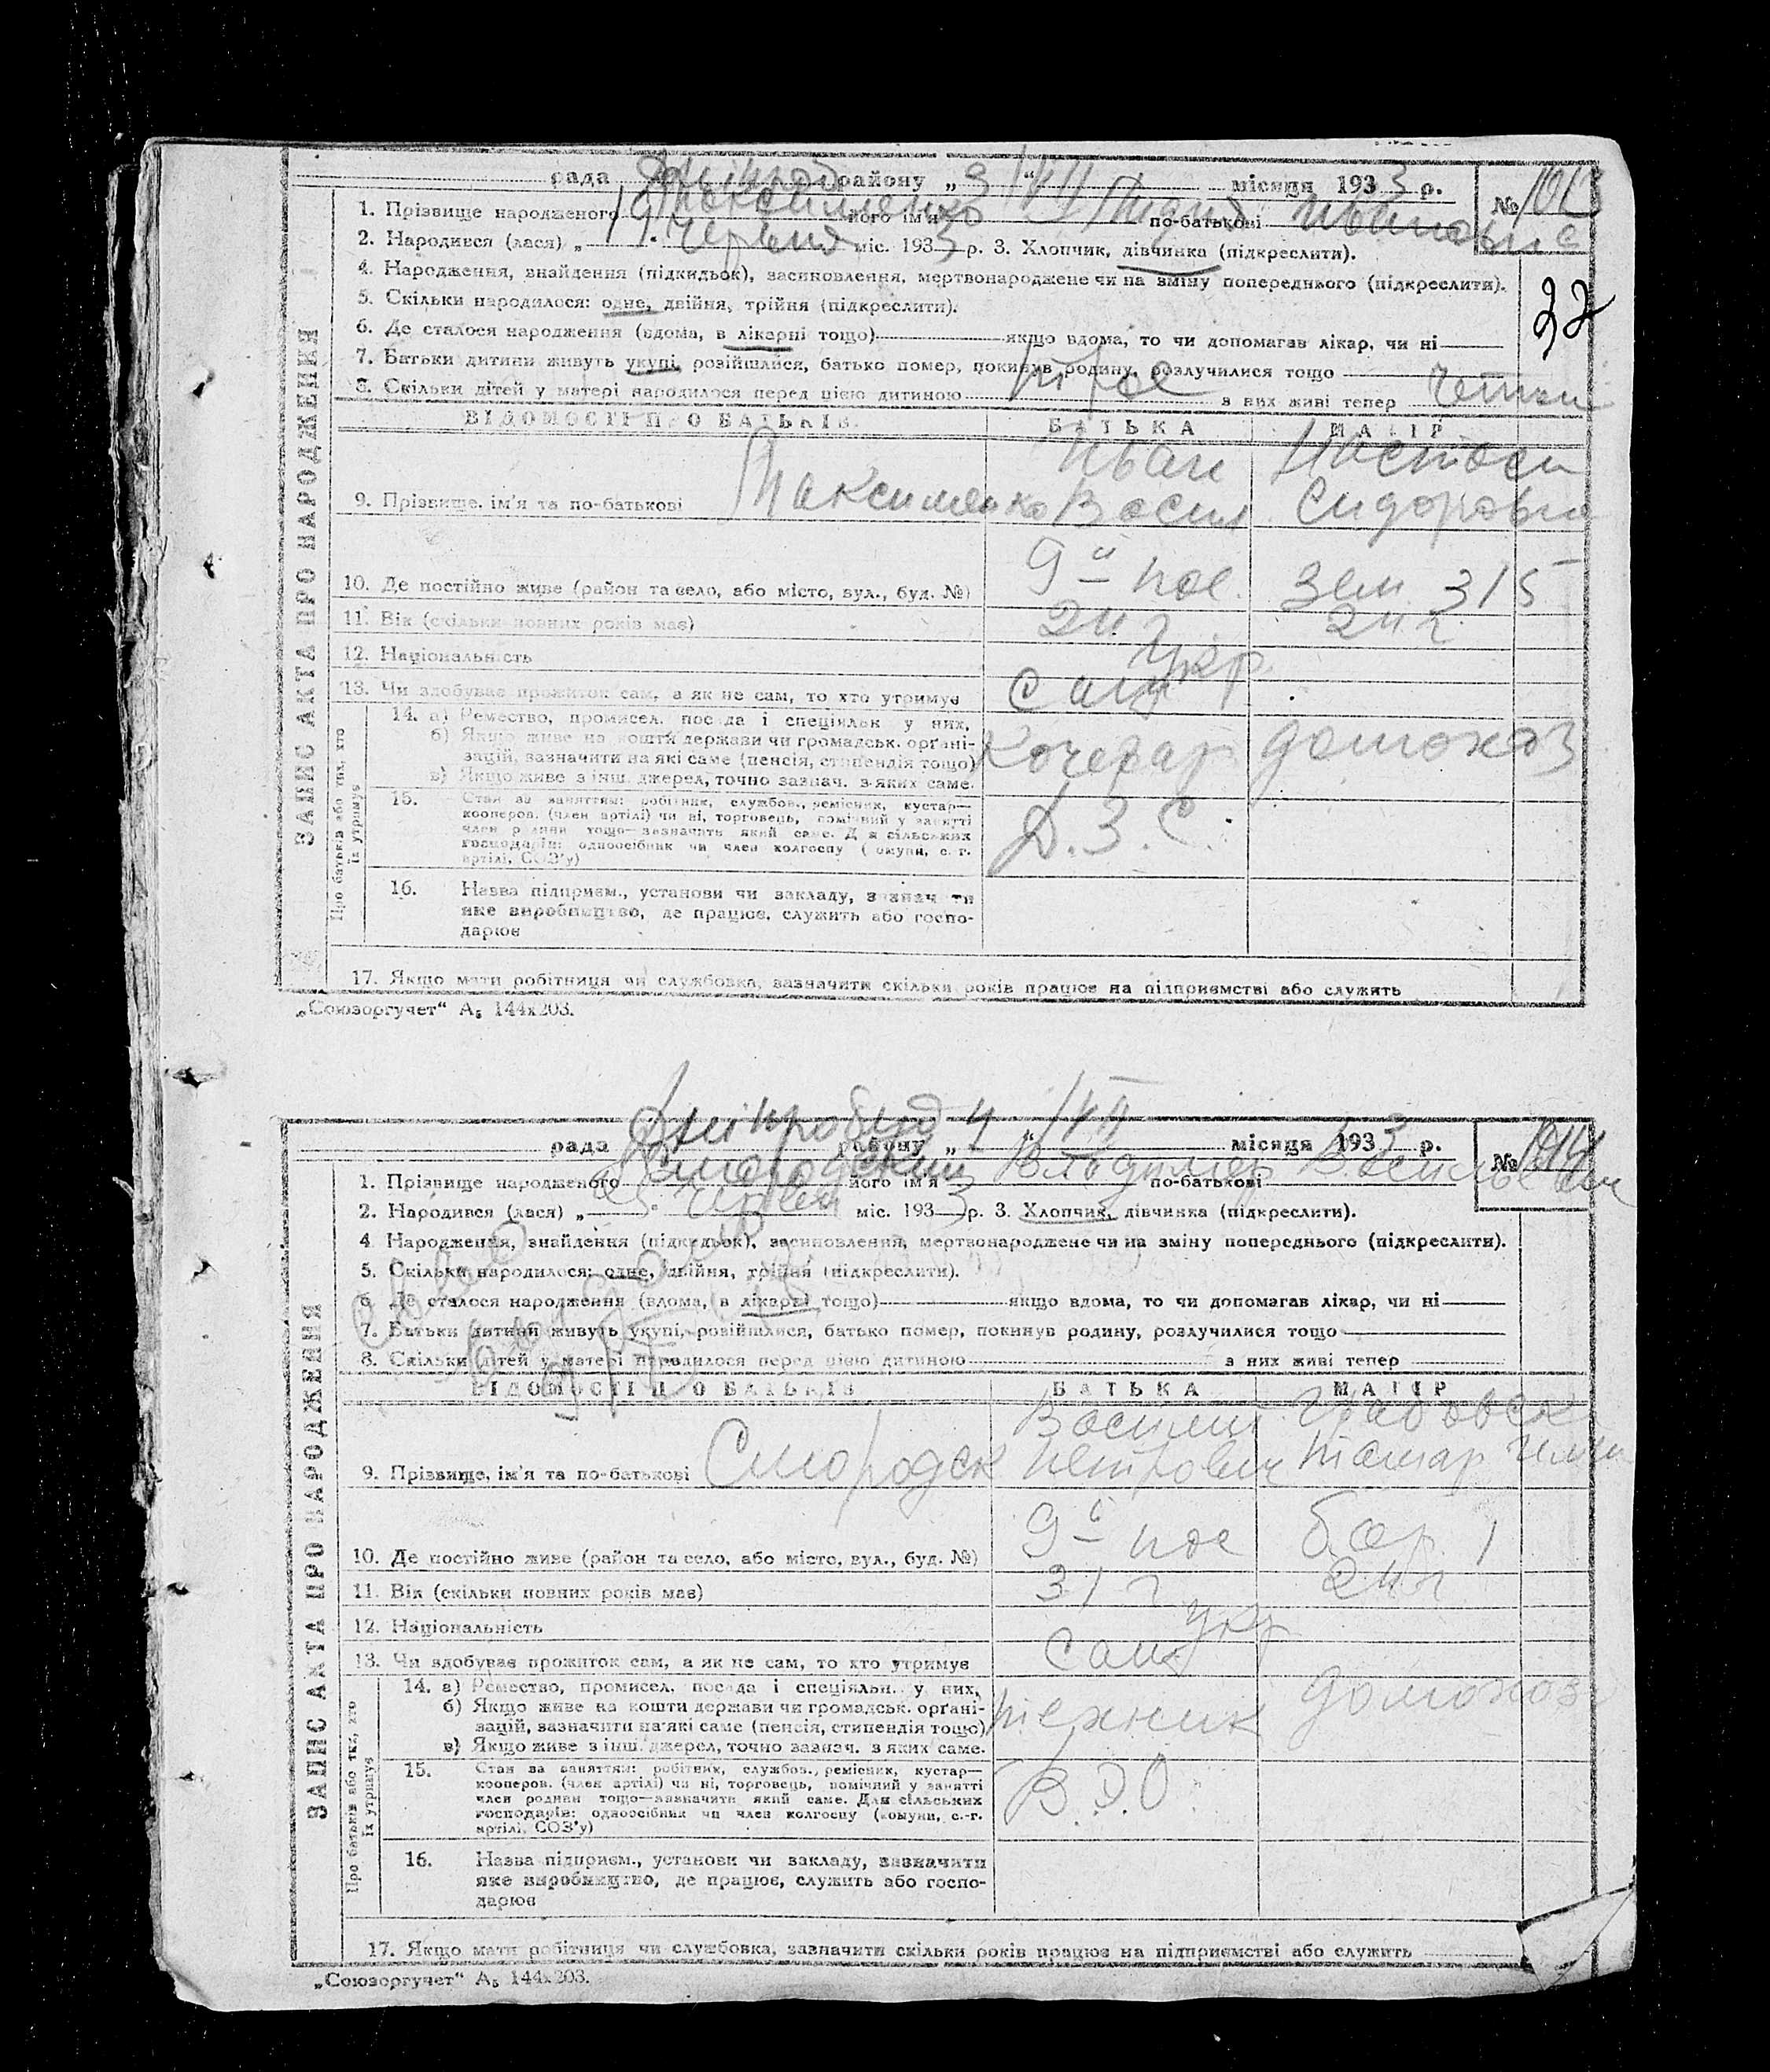 рада району „3“ VII місяця 1933 р. № 1013
1. Прізвище народженого Максименко його ім'я по-батькові Ивановна
2. Народився (лася) „19“ червня міс. 1933 р. 3. Хлопчик, дівчинка (підкреслити).
4. Народження, знайдення (підкидьок), засиновлення, мертвонароджене чи на зміну попереднього (підкреслити).
32
5. Скільки народилося: одне, двійня, трійня (підкреслити).
6. Де сталося народження (вдома, в лікарні тощо) якщо вдома, то чи допомагав лікар, чи ні
7. Батьки дитини живуть укупі, розійшлися, батько помер, покинув родину, розлучилися тощо
8. Скільки дітей у матері народилося перед цією дитиною з них живі тепер
ВІДОМОСТІ ПРО БАТЬКІВ БАТЬКА МАТІР
Иван
9. Прізвище, ім'я та по-батькові Максименко Васил Сидоровна
10. Де постійно живе (район та село, або місто, вул., буд. №) 9й пос. Зем 315
11. Вік (скільки повних років має) 24 г 24 г
12. Національність укр.
13. Чи здобуває прожиток сам, а як не сам, то хто утримує Сам
ЗАПИС АКТА ПРО НАРОДЖЕННЯ
Про батьків або тих, хто їх утримує
14. а) Ремество, промисел, посада і спеціяльн. у них,
б) Якщо живе на кошти держави чи громадськ. орґані-
зацій, зазначити на які саме (пенсія, стипендія тощо) Кочегар домохоз
в) Якщо живе з інш. джерел, точно зазнач. з яких саме.
15. Стан за заняттям: робітник, службов., ремісник, кустар—
кооперов. (член артілі) чи ні, торговець, помічний у занятті
член родини тощо—зазначити який саме. Для сільських
господарів: одноосібник чи член колгоспу (комуни, с.-г.
артілі, СОЗ'у) Д.З.С.
16. Назва підприєм., установи чи закладу, зазначити
яке виробництво, де працює, служить або госпо-
дарює
17. Якщо мати робітниця чи службовка, зазначити скільки років працює на підприємстві або служить
„Союзоргучет“ А5 144х203.
рада Дніпробуд району „4“ VII місяця 1933 р. № 1014
1. Прізвище народженого його ім'я Владимир по-батькові Васильевич
2. Народився (лася) „ “ червен міс. 1933 р. 3. Хлопчик, дівчинка (підкреслити).
4 Народження, знайдення (підкидьок), засиновлення, мертвонароджене чи на зміну попереднього (підкреслити).
5. Скільки народилося: одне, двійня, трійня (підкреслити).
6. Де сталося народження (вдома, в лікарні тощо) якщо вдома, то чи допомагав лікар, чи ні
7. Батьки дитини живуть укупі, розійшлися, батько помер, покинув родину, розлучилися тощо
8. Скільки дітей у матері народилося перед цією дитиною з них живі тепер
ВІДОМОСТІ ПРО БАТЬКІВ БАТЬКА МАТІР
Василий
9. Прізвище, ім'я та по-батькові Смородск Петрович Тамар
10. Де постійно живе (район та село, або місто, вул., буд. №) 9й пос бар. 1
11. Вік (скільки повних років має) 31 г 24 г
12. Національність укр
13. Чи здобуває прожиток сам, а як не сам, то хто утримує Сам
ЗАПИС АКТА ПРО НАРОДЖЕННЯ
Про батьків або тих, хто їх утримує
14. а) Ремество, промисел, посада і спеціяльн. у них,
б) Якщо живе на кошти держави чи громадськ. орґані-
зацій, зазначити на які саме (пенсія, стипендія тощо) техник домохоз
в) Якщо живе з інш. джерел, точно зазнач. з яких саме.
15. Стан за заняттям: робітник, службов., ремісник, кустар—
кооперов. (член артілі) чи ні, торговець, помічний у занятті
член родини тощо—зазначити який саме. Для сільських
господарів: одноосібник чи член колгоспу (комуни, с.-г.
артілі, СОЗ'у) В.Э.О.
16. Назва підприєм., установи чи закладу, зазначити
яке виробництво, де працює, служить або госпо-
дарює
17. Якщо мати робітниця чи службовка, зазначити скільки років працює на підприємстві або служить
„Союзоргучет“ А5 144х203.